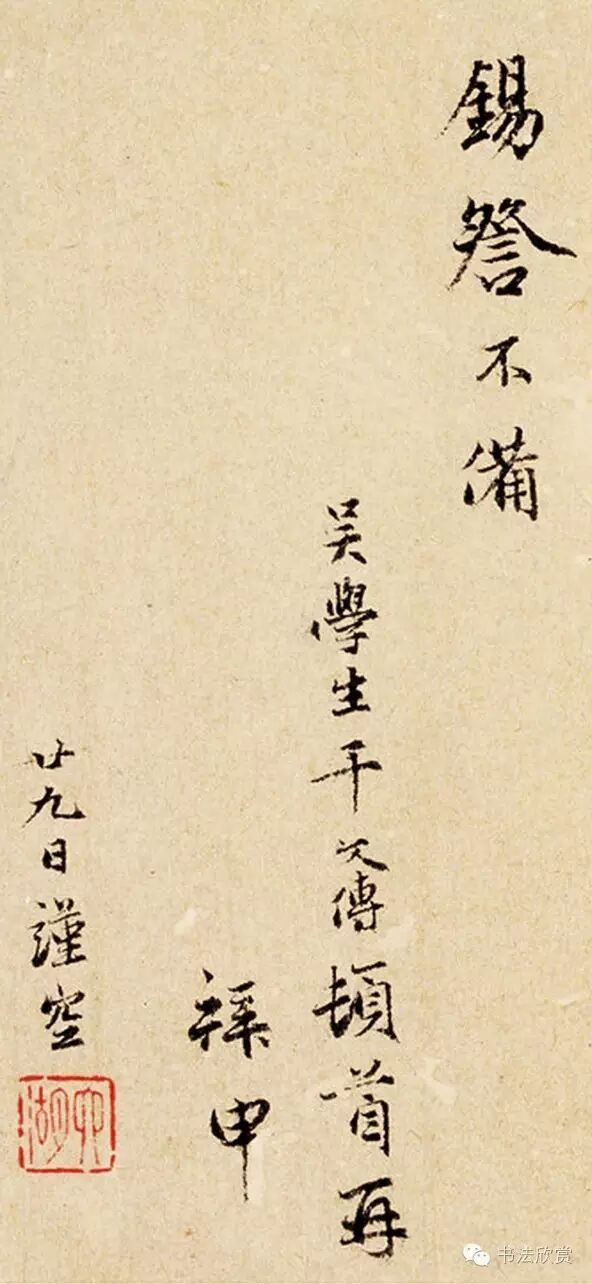 錫詧不備
吳學生干文傳頓首再
拜申
廿九日謹空
书法欣赏